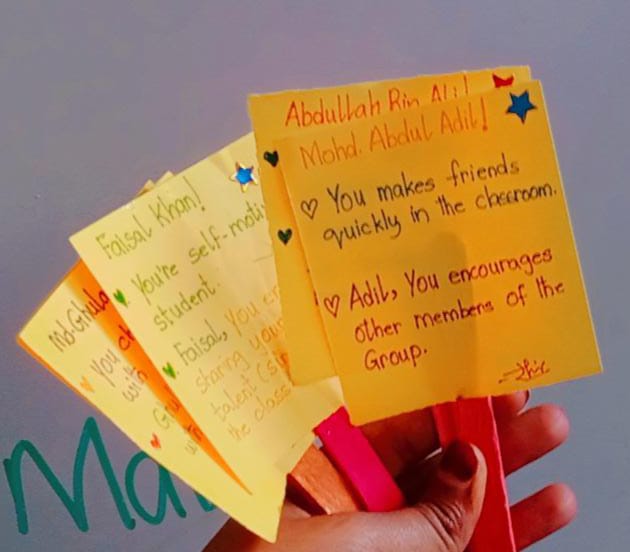 Abdullah Bin Ali!
Mohd. Abdul Adil!
You makes friends
quickly in the classroom.
Adil, You encourages
other members of the
Group.
Faisal Khan!
You're self-moti
student.
Faisal, You en
sharing your
talent (si
the class
Md. Ghula
You ch
with
Gu
with
Ma